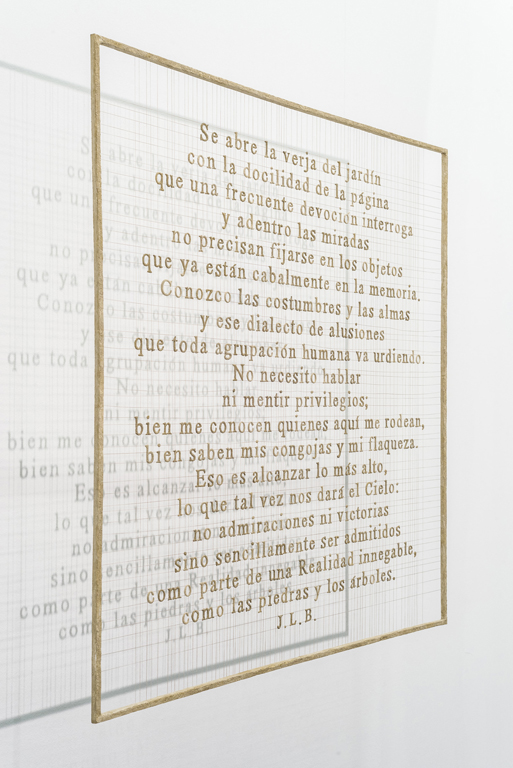 Se abre la verja del jardín
con la docilidad de la página
que una frecuente devoción interroga
y adentro las miradas
no precisan fijarse en los objetos
que ya están cabalmente en la memoria.
Conozco las costumbres y las almas
y ese dialecto de alusiones
que toda agrupación humana va urdiendo.
No necesito hablar
ni mentir privilegios;
bien me conocen quienes aquí me rodean,
bien saben mis congojas y mi flaqueza.
Eso es alcanzar lo más alto,
lo que tal vez nos dará el Cielo:
no admiraciones ni victorias
sino sencillamente ser admitidos
como parte de una Realidad innegable,
como las piedras y los árboles.
J.L.B.